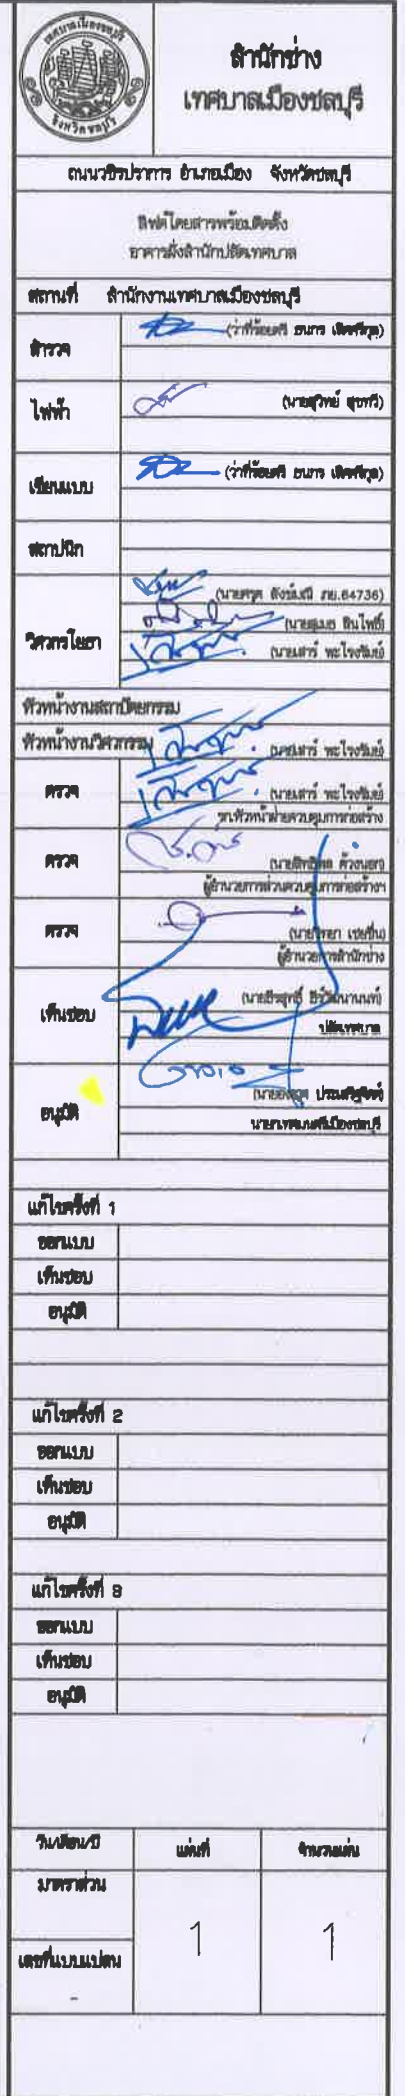 เทศบาลเมืองชลบุรี
จังหวัดชลบุรี
สำนักช่าง
เทศบาลเมืองชลบุรี
ถนนวชิรปราการ อำเภอเมือง จังหวัดชลบุรี
ลิฟต์โดยสารพร้อมติดตั้ง
อาคารฝั่งสำนักปลัดเทศบาล
สถานที่ สำนักงานเทศบาลเมืองชลบุรี
สำรวจ (ว่าที่ร้อยตรี ธนกร เลิศศรีกุล)
ไฟฟ้า (นายสุวิทย์ สุขทวี)
เขียนแบบ (ว่าที่ร้อยตรี ธนกร เลิศศรีกุล)
สถาปนิก
(นายศรุต สังข์มณี ภย.64736)
วิศวกรโยธา (นายสุเมธ สินไพร)
(นายเสาร์ พะโรงรัมย์)
หัวหน้างานสถาปัตยกรรม
หัวหน้างานวิศวกรรม (นายเสาร์ พะโรงรัมย์)
ตรวจ (นายเสาร์ พะโรงรัมย์)
รก.หัวหน้าฝ่ายควบคุมการก่อสร้าง
ตรวจ
ผู้อำนวยการส่วนควบคุมการก่อสร้างฯ
ตรวจ (นายวิทยา เชยชื่น)
ผู้อำนวยการสำนักช่าง
เห็นชอบ (นายธีรสุทธิ์ ธีร์วัฒนานนท์)
ปลัดเทศบาล
อนุมัติ ประเสริฐทิตพร์)
นายกเทศมนตรีเมืองชลบุรี
แก้ไขครั้งที่ 1
ออกแบบ
เห็นชอบ
อนุมัติ
แก้ไขครั้งที่ 2
ออกแบบ
เห็นชอบ
อนุมัติ
แก้ไขครั้งที่ 3
ออกแบบ
เห็นชอบ
อนุมัติ
วัน/เดือน/ปี แผ่นที่ จำนวนแผ่น
มาตราส่วน
1 1
เลขที่แบบแปลน
-